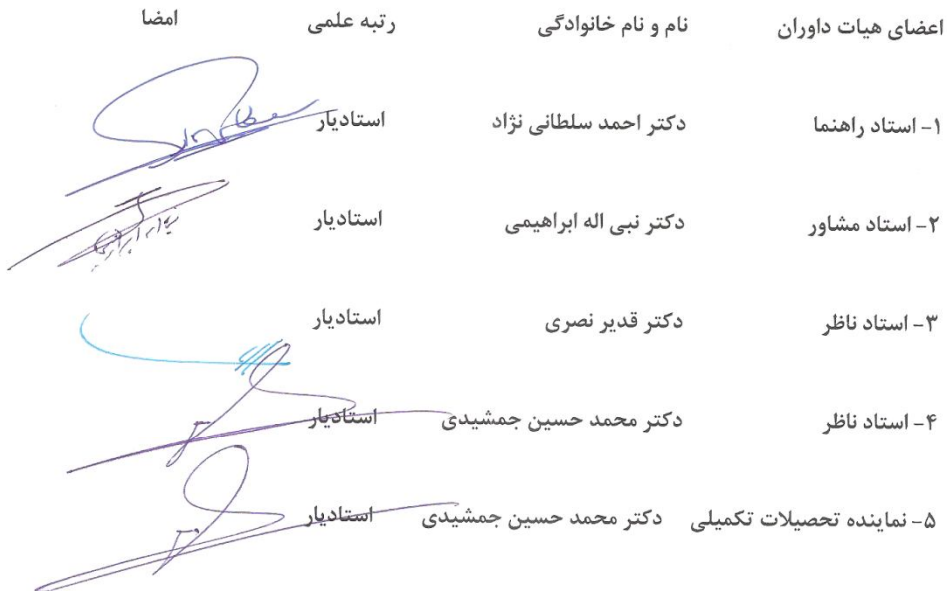 اعضای هیات داوران نام و نام خانوادگی رتبه علمی امضا
۱- استاد راهنما دکتر احمد سلطانی نژاد استادیار
۲- استاد مشاور دکتر نبی اله ابراهیمی استادیار
۳- استاد ناظر دکتر قدیر نصری استادیار
۴- استاد ناظر دکتر محمد حسین جمشیدی استادیار
۵- نماینده تحصیلات تکمیلی دکتر محمد حسین جمشیدی استادیار